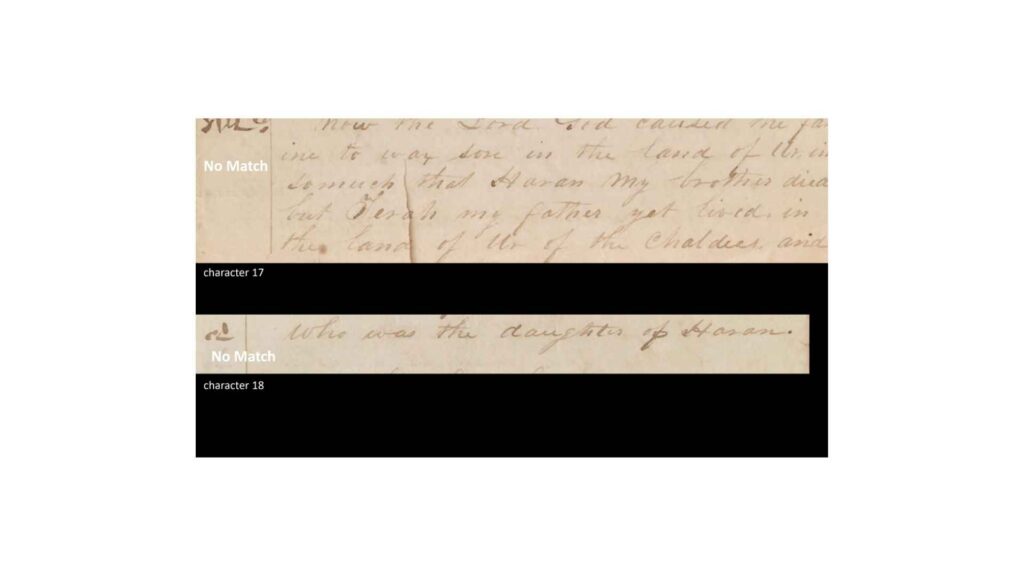 Now the Lord God caused the fam
No Match
ine to wax sore in the land of Ur, in
somuch that Haran my brother died
but Terah my father yet lived, in
the land of Ur of the Chaldees, and
character 17
Who was the daughter of Haran.
No Match
character 18